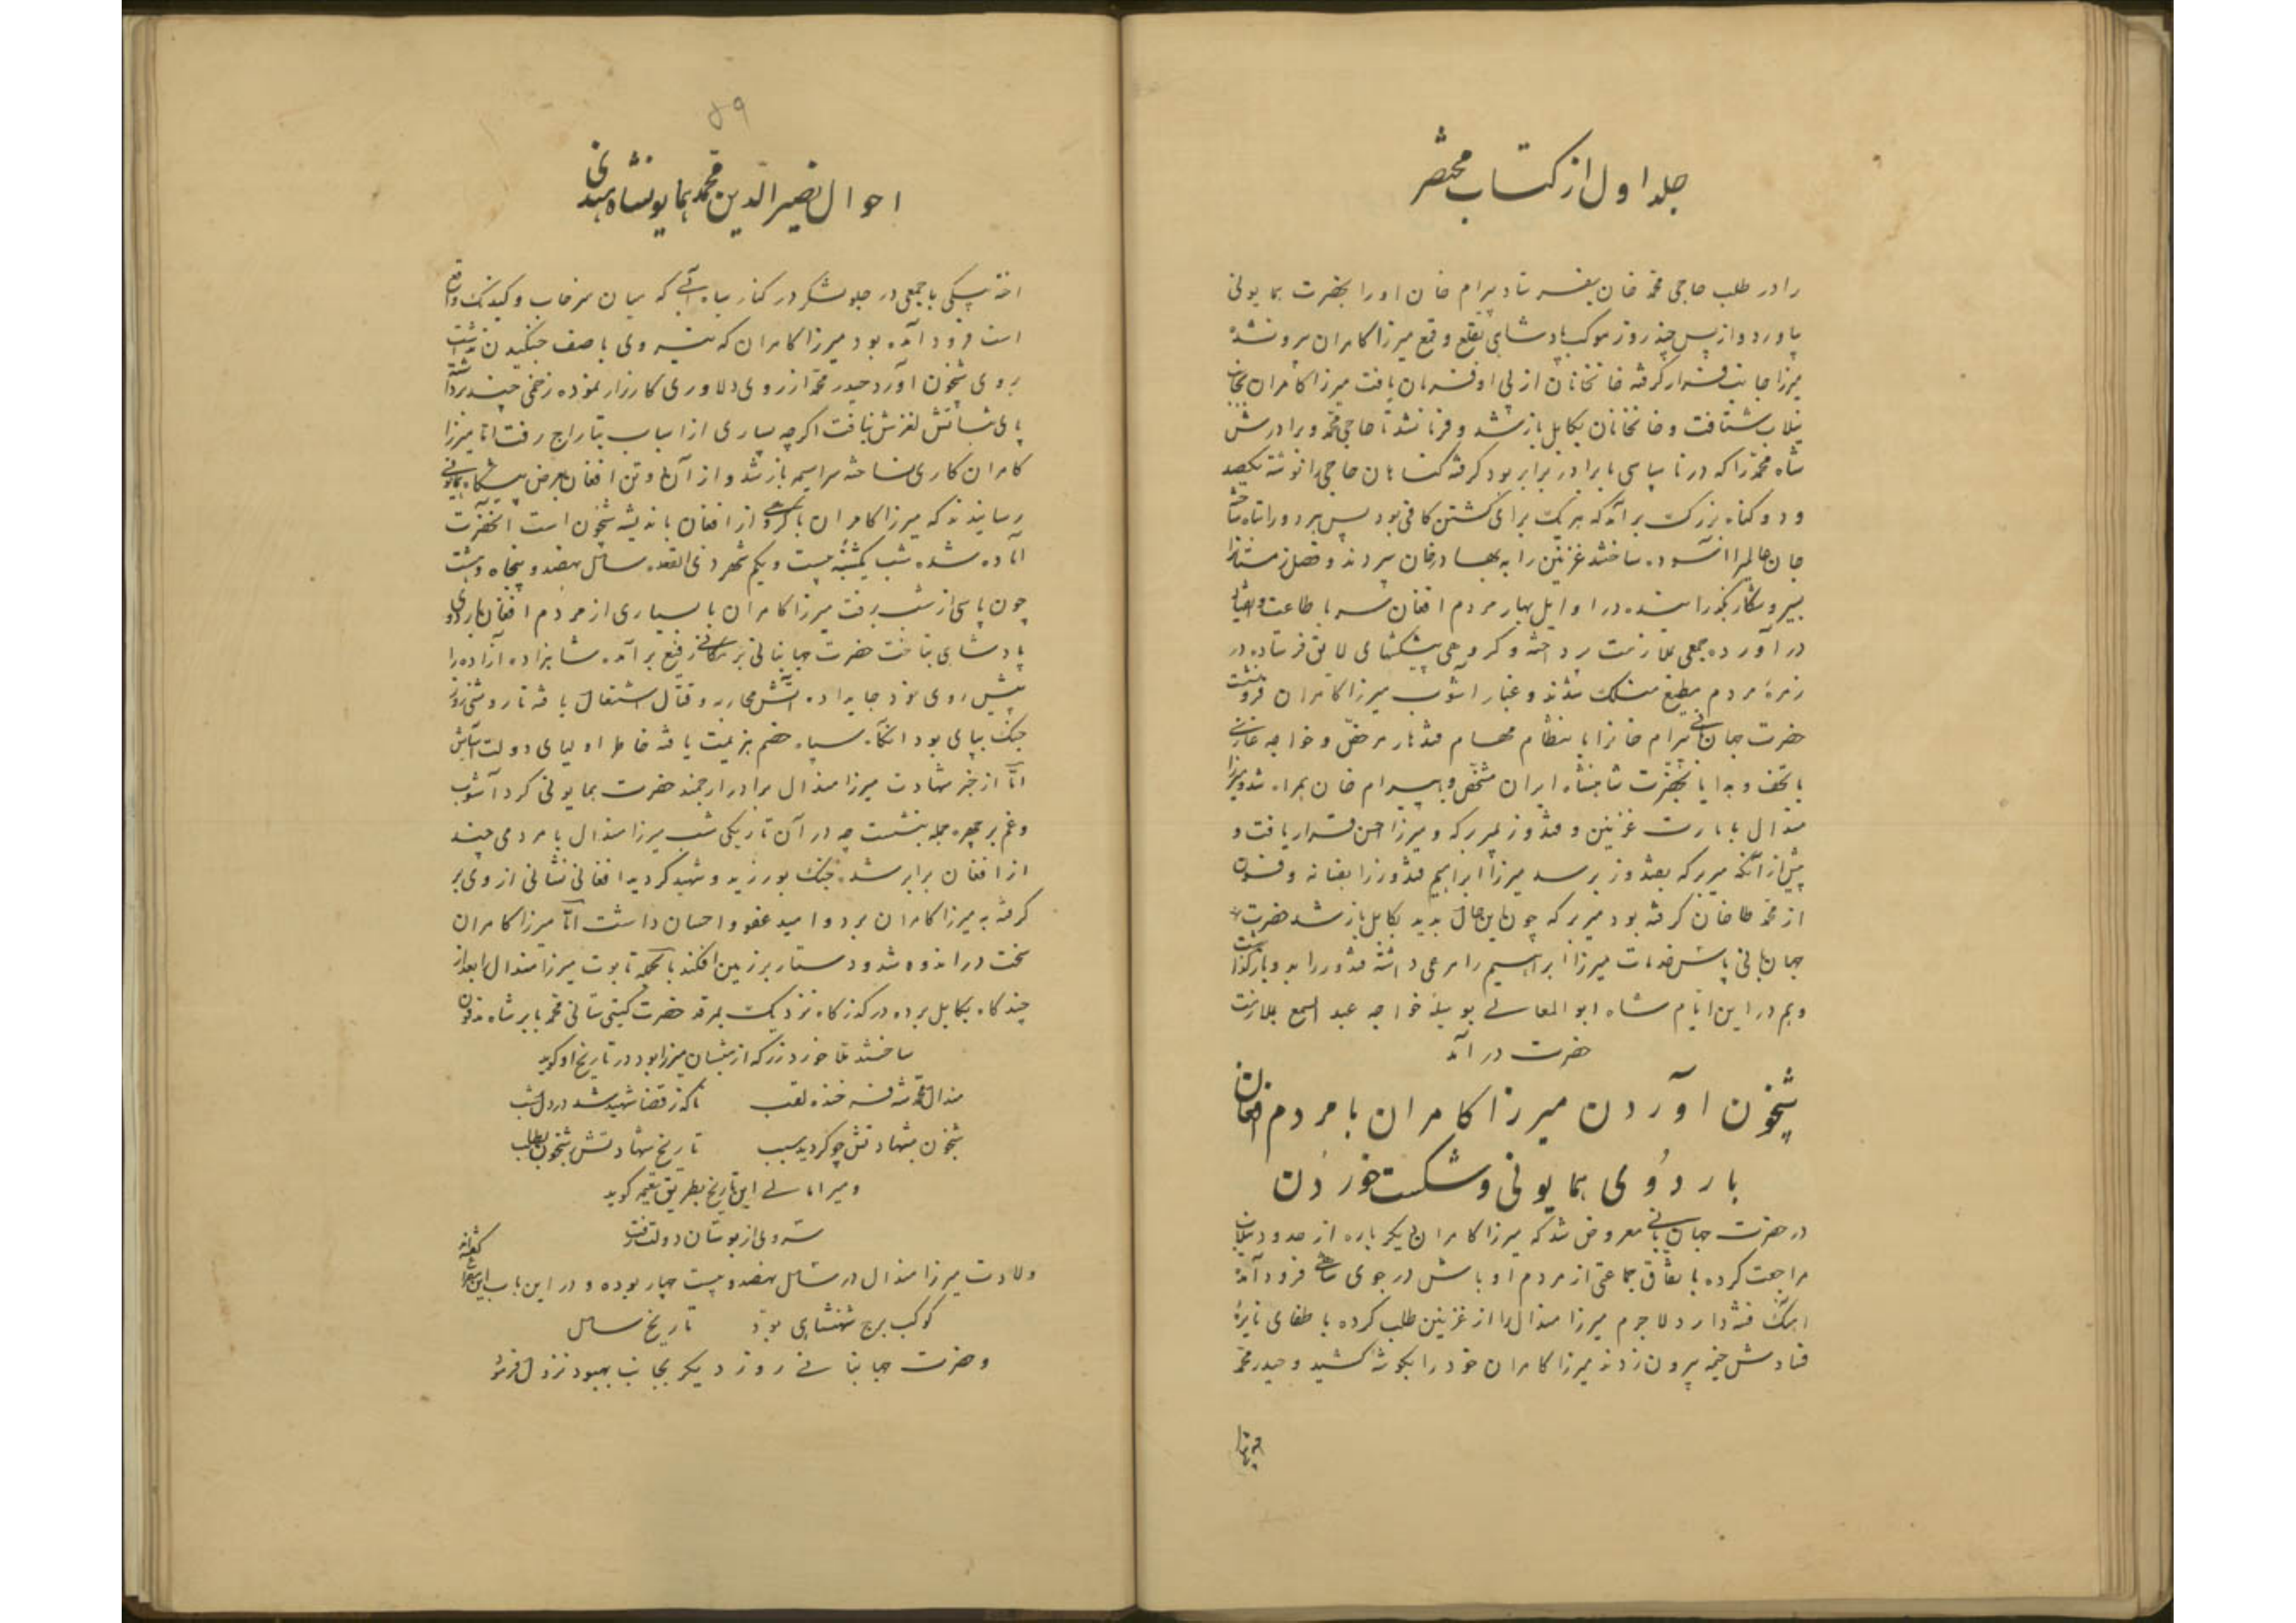 جلد اول از کتاب مختصر
را در طلب حاجی محمد خان بفرستاد بیرام خان او را بحضرت همایونی
بیاورد و از پس چند روز موکب پادشاهی بقلع و قمع میرزا کامران بیرون شده
میرزا جانب فرار گرفته خانخانان از پی او فرمان یافت میرزا کامران بجانب
نیلاب شتافت و خانخانان بکابل باز شد و فرمان شد تا حاجی محمد و برادرش
شاه محمد را که در ناسپاسی با برادر برابر بود گرفته گناهان حاجی را نوشته یکصد
و دو گناه بزرگ برآمد که هر یک برای کشتن کافی بود پس هر دو را تباه ساخته
جان عالمی را آسوده ساختند غزنین را به بهادرخان سپردند و فصل زمستان را
بسیر و شکار بگذرانیده در اوایل بهار مردم افغان سر باطاعت و انقیاد
در آورده جمعی ملازمت پرداخته و گروهی پیشکشهای لایق فرستاده در
زمره مردم مطیع منسلک شدند و غبار آشوب میرزا کامران فرو نشست
حضرت جهانبانی بیرام خان را بانتظام مهام قندهار مرخص و خواجه غازی
با تحف و هدایا بحضرت شاهنشاه ایران مشخص و با بیرام خان همراه شد و میرزا
هندال بامارت غزنین و قندوز بمیر برکه و میرزا حسن قرار یافت و
پیش از آنکه میر برکه بقندوز برسد میرزا ابراهیم قندوز را بفسانه و فسون
از محمد طاهر خان گرفته بود میر برکه چون این حال بدید بکابل باز شد حضرت
جهانبانی پاس خدمات میرزا ابراهیم را مرعی داشته قندوز را بدو بازگذاشت
و هم در این ایام شاه ابوالمعالی بوسیله خواجه عبد السمیع بملازمت
حضرت در آمد
شبیخون آوردن میرزا کامران با مردم افغان
باردوی همایونی و شکست خوردن
در حضرت جهانبانی معروض شد که میرزا کامران دیگر باره از حدود نیلاب
مراجعت کرده باتفاق جماعتی از مردم اوباش در جوی شاهی فرود آمده
آهنگ فتنه دارد لاجرم میرزا هندال را از غزنین طلب کرده باطفای نایره
فسادش خیمه بیرون زدند میرزا کامران خود را بگوشه کشید و حیدر محمد
۵۹
احوال نصیر الدین محمد همایونشاه هندی
اخته بیکی با جمعی در جلو لشکر در کنار سیاه آبی که میان سرخاب و گندمک واقع
است فرود آمده بود میرزا کامران که نیروی با صف جنگیدن نداشت
روی شبیخون آورد حیدر محمد از روی دلاوری کارزار نموده زخمی چند برداشت
پای ثباتش لغزش نیافت اگرچه بسیاری از اسباب بتاراج رفت اما میرزا
کامران کاری نساخته سراسیمه باز شد و از آن جا دو تن افغان بعرض پیشگاه همایونی
رسانیدند که میرزا کامران با گروهی از افغان باندیشه شبیخون است آنحضرت
آماده شده شب یکشنبه بیست و یکم شهر ذی القعده سال نهصد و پنجاه و هشت
چون پاسی از شب برفت میرزا کامران با بسیاری از مردم افغان باردوی
پادشاهی بتاخت حضرت جهانبانی بر مکانی رفیع برآمده شاهزاده آزاده را
پیش روی خود جای داده آتش محاربه و قتال اشتعال یافته تا روشنی روز
جنگ بپای بود آنگاه سپاه خصم هزیمت یافته خاطر اولیای دولت آسایش
اما از خبر شهادت میرزا هندال برادر ارجمند حضرت همایونی گرد آشوب
و غم بر چهره جمله بنشست چه در آن تاریکی شب میرزا هندال با مردمی چند
از افغان برابر شده جنگ بورزید و شهید گردید افغانی نشانی از وی بر
گرفته به میرزا کامران برد و امید عفو و احسان داشت اما میرزا کامران
سخت در اندوه شد و دستار بر زمین افکند بالجمله تابوت میرزا هندال را بعد از
چند گاه بکابل برده در گذرگاه نزدیک بمرقد حضرت گیتی ستانی محمد بابر شاه مدفون
ساختند ملا خورد زرگر از منتسبان میرزا بود در تاریخ او گوید
هندال محمد شه فرخنده لقب ناگه ز قضا شهید شد در دل شب
شبخون بشهادتش چو گردید سبب تاریخ شهادتش ز شبخون بطلب
و میر امانی این تاریخ بطریق تعمیه گوید
سروی از بوستان دولت رفت
ولادت میرزا هندال در سال نهصد و بیست چهار بوده و در این باب این شعر را گفته‌اند
کوکب برج شهنشاهی بود تاریخ سال
و حضرت جهانبانی روز دیگر بجانب بهسود نزول فرمود